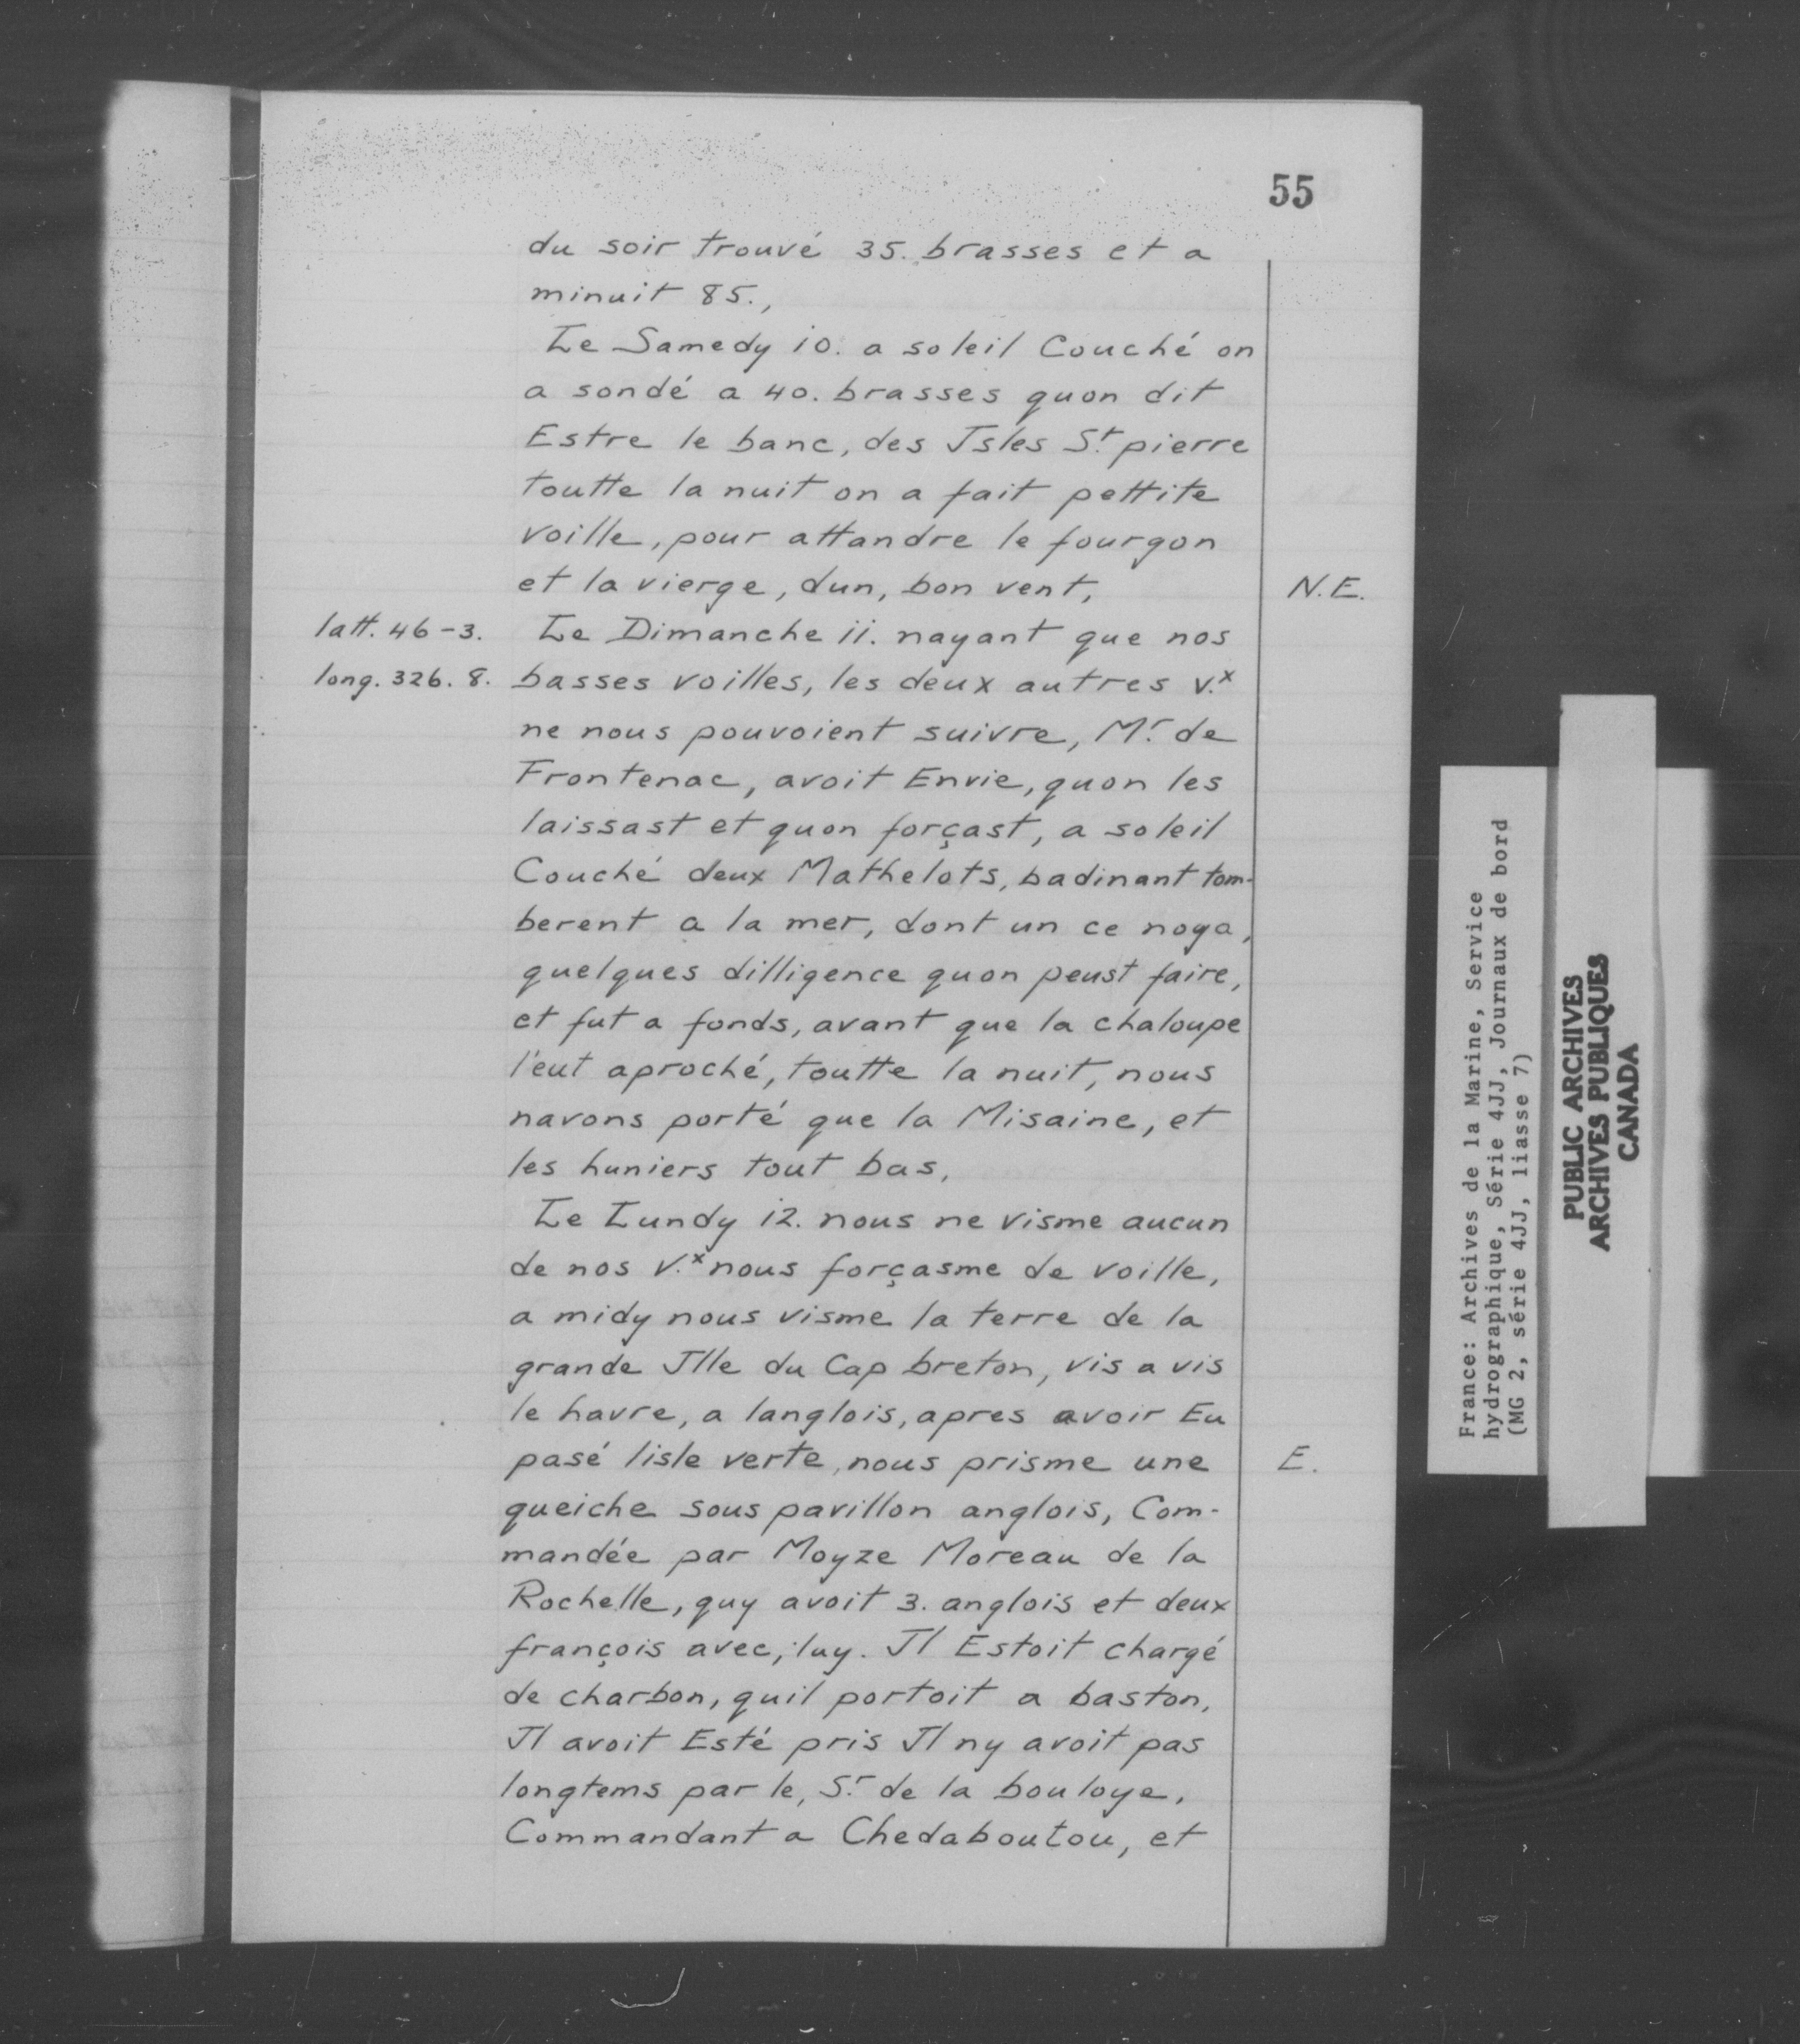 55
du soir trouvé 35. brasses et a
minuit 85.,
Le Samedy 10. a soleil Couché on
a sondé a 40. brasses quon dit
Estre le banc, des Jsles S.t pierre
toutte la nuit on a fait pettite
voille, pour attandre le fourgon
et la vierge, dun, bon vent, N.E.
latt. 46-3. Le Dimanche 11. nayant que nos
long. 326. 8. basses voilles, les deux autres v.x
ne nous pouvoient suivre, M.r de
Frontenac, avoit Envie, quon les
laissast et quon forçast, a soleil
Couché deux Mathelots, badinant tom-
berent a la mer, dont un ce noya,
quelques dilligence quon peust faire,
et fut a fonds, avant que la chaloupe
l'eut aproché, toutte la nuit, nous
navons porté que la Misaine, et
les huniers tout bas,
Le Lundy 12. nous ne visme aucun
de nos V.x nous forçasme de voille,
a midy nous visme la terre de la
grande Jlle du Cap breton, vis a vis
le havre, a langlois, apres avoir Eu
pasé lisle verte, nous prisme une E.
queiche sous pavillon anglois, Com-
mandée par Moyze Moreau de la
Rochelle, quy avoit 3. anglois et deux
françois avec, luy. Jl Estoit chargé
de charbon, quil portoit a baston,
Jl avoit Esté pris Jl ny avoit pas
longtems par le, S.r de la bouloye,
Commandant a Chedaboutou, et
France: Archives de la Marine, Service
hydrographique, Série 4JJ, Journaux de bord
(MG 2, série 4JJ, liasse 7)
PUBLIC ARCHIVES
ARCHIVES PUBLIQUES
CANADA